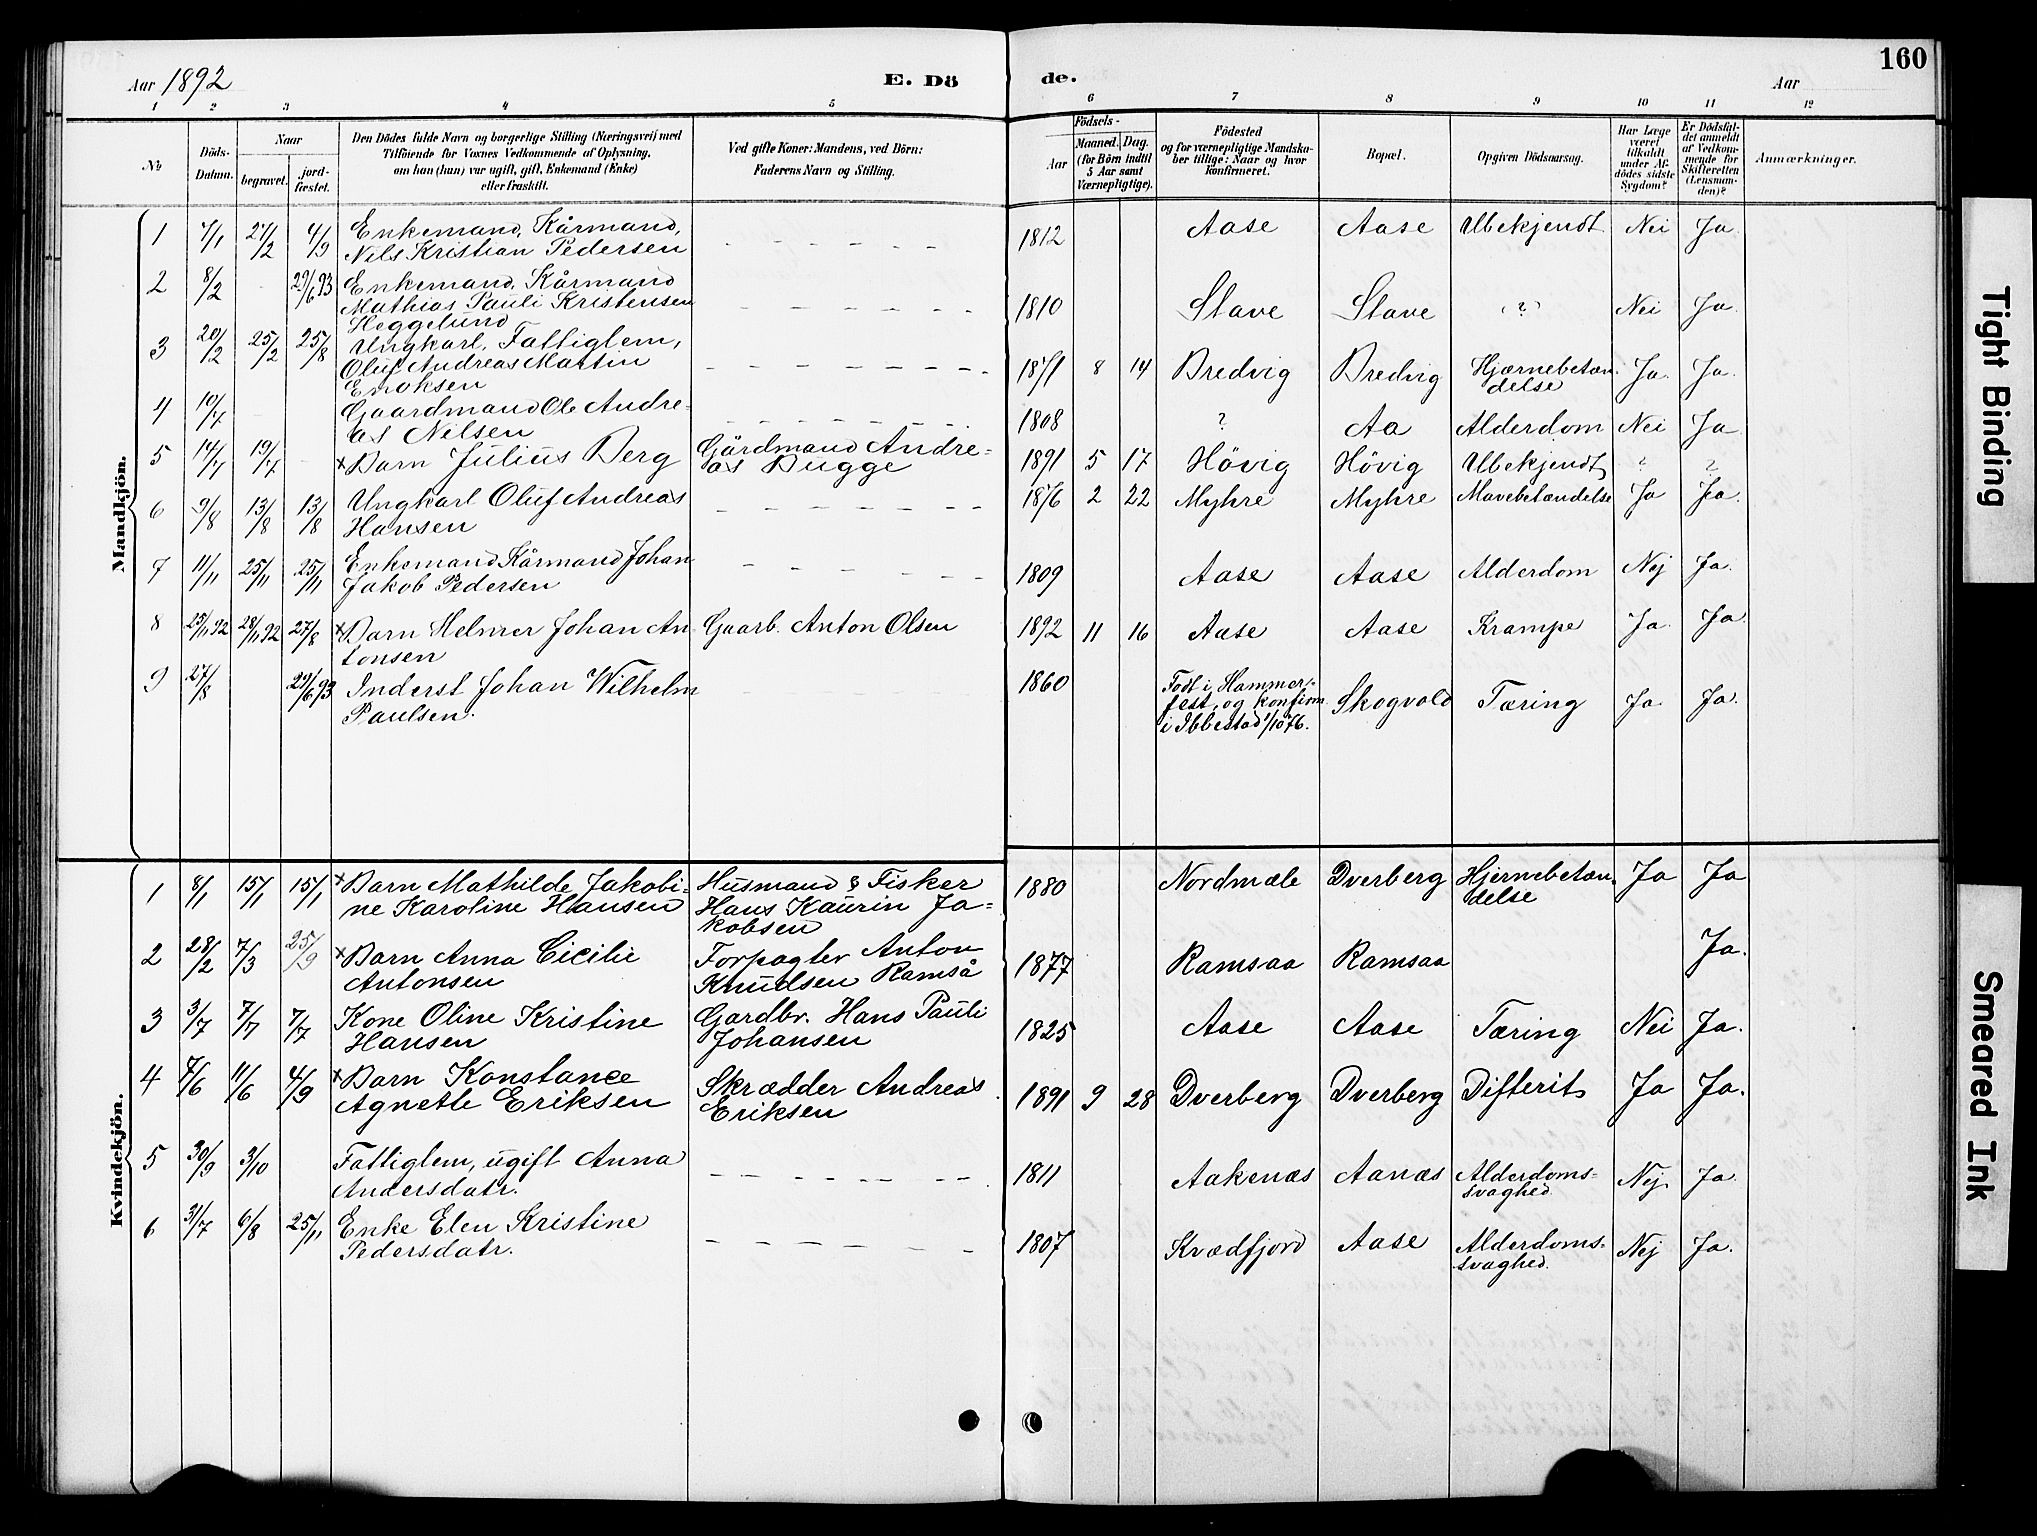 160
Aar 1892 E. Döde. Aar
1 2 3 4 5 6 7 8 9 10 11 12
No
Döds-Datum.
Naar
begravet.
jord-fæstet.
Den Dödes fulde Navn og borgerlige Stilling (Næringsvei) med
Tilföiende for Voxnes Vedkommende af Oplysning,
om han (hun) var ugift, gift, Enkemand (Enke)
eller fraskilt.
Ved gifte Koner: Mandens, ved Börn:
Faderens Navn og Stilling.
Födsels-
Aar
Maaned. Dag.
(for Börn indtil
5 Aar samt
Værnepligtige).
Födested
og for værnepligtige Mandska-
ber tillige: Naar og hvor
konfirmeret.
Bopæl.
Opgiven Dödsaarsag.
Har Læge
været
tilkaldt
under Af-
dödes sidste
Sygdom?
Er Dödsfal-
det anmeldt
af Vedkom-
mende for
Skifteretten
(Lensman-
den)?
Anmærkninger.
Mandkjön.
1 7/1 27/2 4/9 Enkemand, Kårmand, 1812 Aase Aase Ubekjendt Nei Ja.
Nils Kristian Pedersen
2 8/2 29/6 93 Enkemand, Kårmand 1810 Stave Stave (?) Nei Ja.
Mathias Pauli Kristensen
Heggelund
3 20/2 25/2 25/8 Ungkarl, Fattiglem, 1871 8 14 Bredvig Bredvig Hjærnebetæn- Ja. Ja.
Oluf Andreas Martin delse
Enoksen
4 10/4 Gaardmand Ole Andre- 1808 ? Aa Alderdom Nei Ja
as Nilsen
5 14/4 19/4 × Barn Julius Berg Gårdmand Andre- 1891 5 17 Hövig Hövig Ubekjendt ? ?
as Bugge
6 9/8 13/8 13/8 Ungkarl Oluf Andreas 1876 2 22 Myhre Myhre Mavebetændelse Ja Ja.
Hansen
7 11/11 25/11 25/11 Enkemand Kårmand Johan 1809 Aase Aase Alderdom Nej Ja.
Jakob Pedersen
8 25/11 92 28/11 92 27/8 × Barn Helmer Johan An- Gaarb. Anton Olsen 1892 11 16 Aase Aase Krampe Ja. Ja.
tonsen
9 27/8 29/6 93 Inderst Johan Wilhelm 1860 Födt i Hammer- Skogvold Tæring Ja. Ja.
Paulsen. fest, og konfirm.
i Ibbestad 1/10 76.
Kvindekjön.
1 8/1 15/1 15/1 × Barn Mathilde Jakobi- Husmand & Fisker 1880 Nordmæle Dverberg Hjernebetæn- Ja Ja
ne Karoline Hansen Hans Kaurin Ja- delse
kobsen
2 28/2 7/3 25/9 × Barn Anna Cicilie Forpagter Anton 1877 Ramsaa Ramsaa Ja.
Antonsen Knudsen Ramså
3 3/7 7/7 7/7 Kone Oline Kristine Gardbr. Hans Pauli 1825 Aase Aase Tæring Nei Ja.
Hansen Johansen
4 7/6 11/6 4/9 × Barn Konstance Skrædder Andreas 1891 9 28 Dverberg Dverberg Difterit Ja Ja.
Agnethe Eriksen Eriksen
5 30/9 3/10 Fattiglem, ugift Anna 1811 Aakenæs Aanæs Alderdoms- Nej. Ja.
Andersdatr. svaghed.
6 31/7 6/8 25/11 Enke Elen Kristine 1807 Kvædfjord Aase Alderdoms- Nej Ja.
Pedersdatr. svaghed.
Tight Binding
Smeared Ink